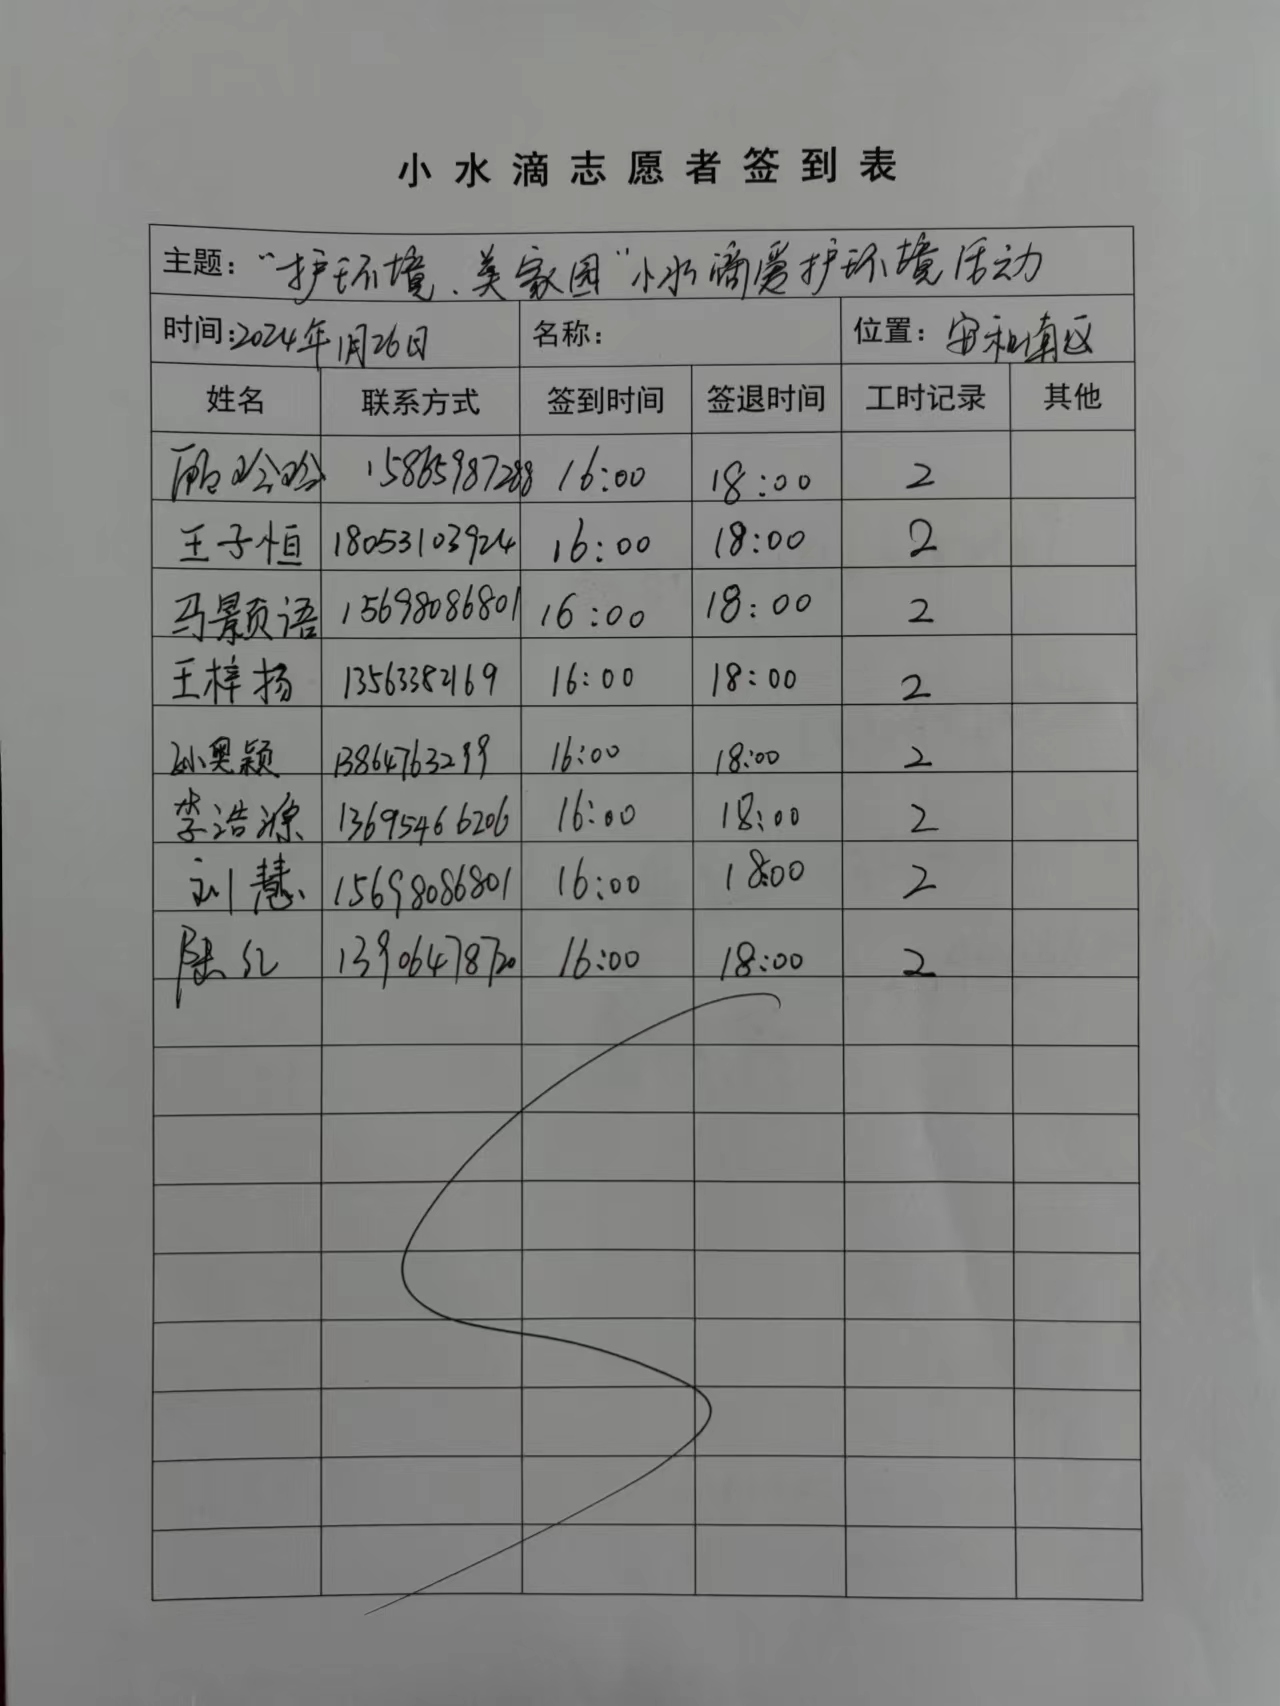 小水滴志愿者签到表
主题：“护环境、美家园”小水滴爱护环境活动
时间：2024年1月26日 名称： 位置：安和南区
姓名 联系方式 签到时间 签退时间 工时记录 其他
15865987288 16:00 18:00 2
王子恒 18053103924 16:00 18:00 2
马景颐语 15698086801 16:00 18:00 2
王梓扬 13563382169 16:00 18:00 2
孙奥颖 13864763299 16:00 18:00 2
李浩源 13695466206 16:00 18:00 2
刘慧 15698086801 16:00 18:00 2
陆红 13906478720 16:00 18:00 2